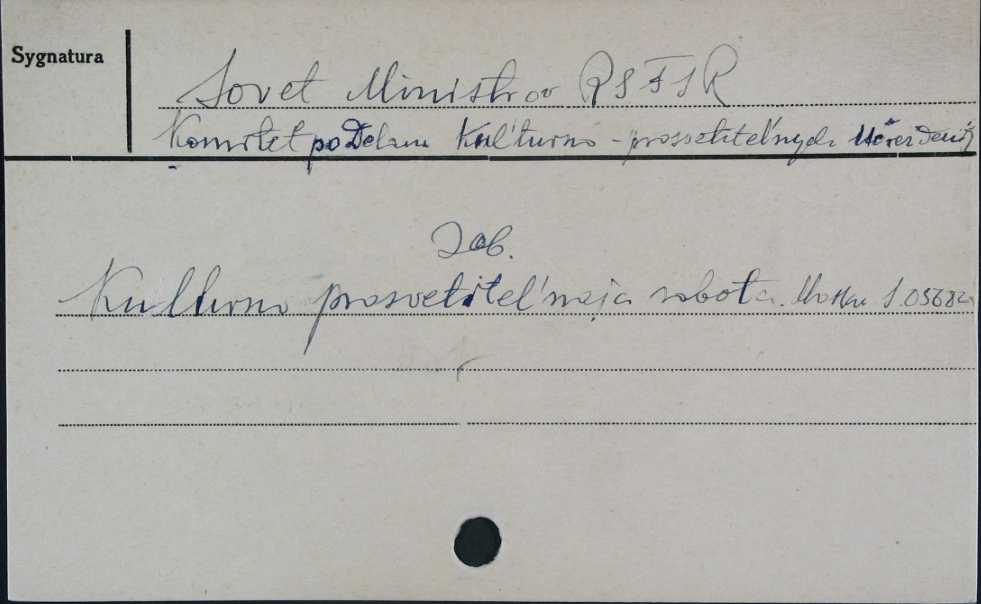 Sygnatura
Sovet Ministrov RSFSR
Komitet po Delam Kul'turno - prosvetitel'nych Učreždenij
Zob.
Kulturno prosvetitel'naja rabota. Moskva S.05682